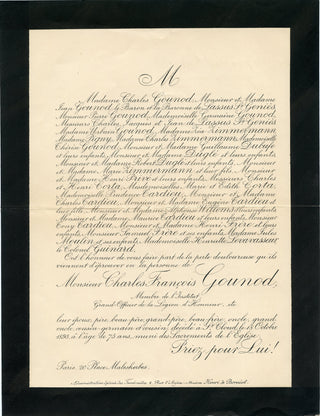 M
Madame Charles Gounod, Monsieur et Madame
Jean Gounod, le Baron et la Baronne de Lassus St Geniès
Monsieur Pierre Gounod, Mademoiselle Germaine Gounod,
Messieurs Charles, Jacques et Jean de Lassus St Geniès
Madame Urbain Gounod, Madame Zimmermann,
Madame Pigny, Madame Charles Zimmermann, Mademoiselle
Thérèse Gounod, Monsieur et Madame Guillaume Dubufe
et leurs enfants, Monsieur et Madame Duglé et leurs enfants,
Monsieur et Madame Robert Duglé et leurs enfants, Monsieur
et Madame Zimmermann et leur fils, Monsieur
et Madame Henri Frère et leurs enfants, Messieurs Charles
et Henri Corta, Mesdemoiselles Marie et Edith Corta,
Mademoiselle Prudence Tardieu, Monsieur et Madame
Charles Tardieu, Monsieur et Madame Eugène Tardieu et
leur fils, Monsieur et Madame Alphonse et leurs enfants,
Monsieur et Madame Maurice Tardieu et leurs enfants, Monsieur
Tony Tardieu, Monsieur et Madame Henri Frère et leurs
enfants, Monsieur Samuel Frère et ses enfants, Madame Jules
Moulin et ses enfants, Mademoiselle Henriette Levavasseur
le Colonel Guinard.
Ont l'honneur de vous faire part de la perte douloureuse qu'ils
viennent d'éprouver en la personne de
Monsieur Charles, François Gounod,
Membre de l'Institut,
Grand Officier de la Légion d'Honneur, etc
leur époux, père, beau-père, grand-père, beau-frère, oncle, grand
oncle, cousin-germain et cousin, décédé à St Cloud le 18 Octobre
1893, à l'âge de 75 ans, muni des Sacrements de l'Église.
Priez pour Lui!
Paris, 20 Place Malesherbes.
Administration Spéciale des Funérailles, Maison Henri de Borniol